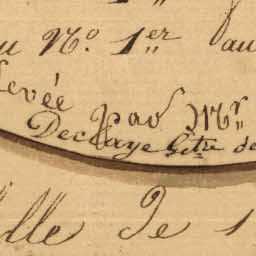 au N.o 1.er au
levée par Mr
Declaye Gtre de
ille de 1